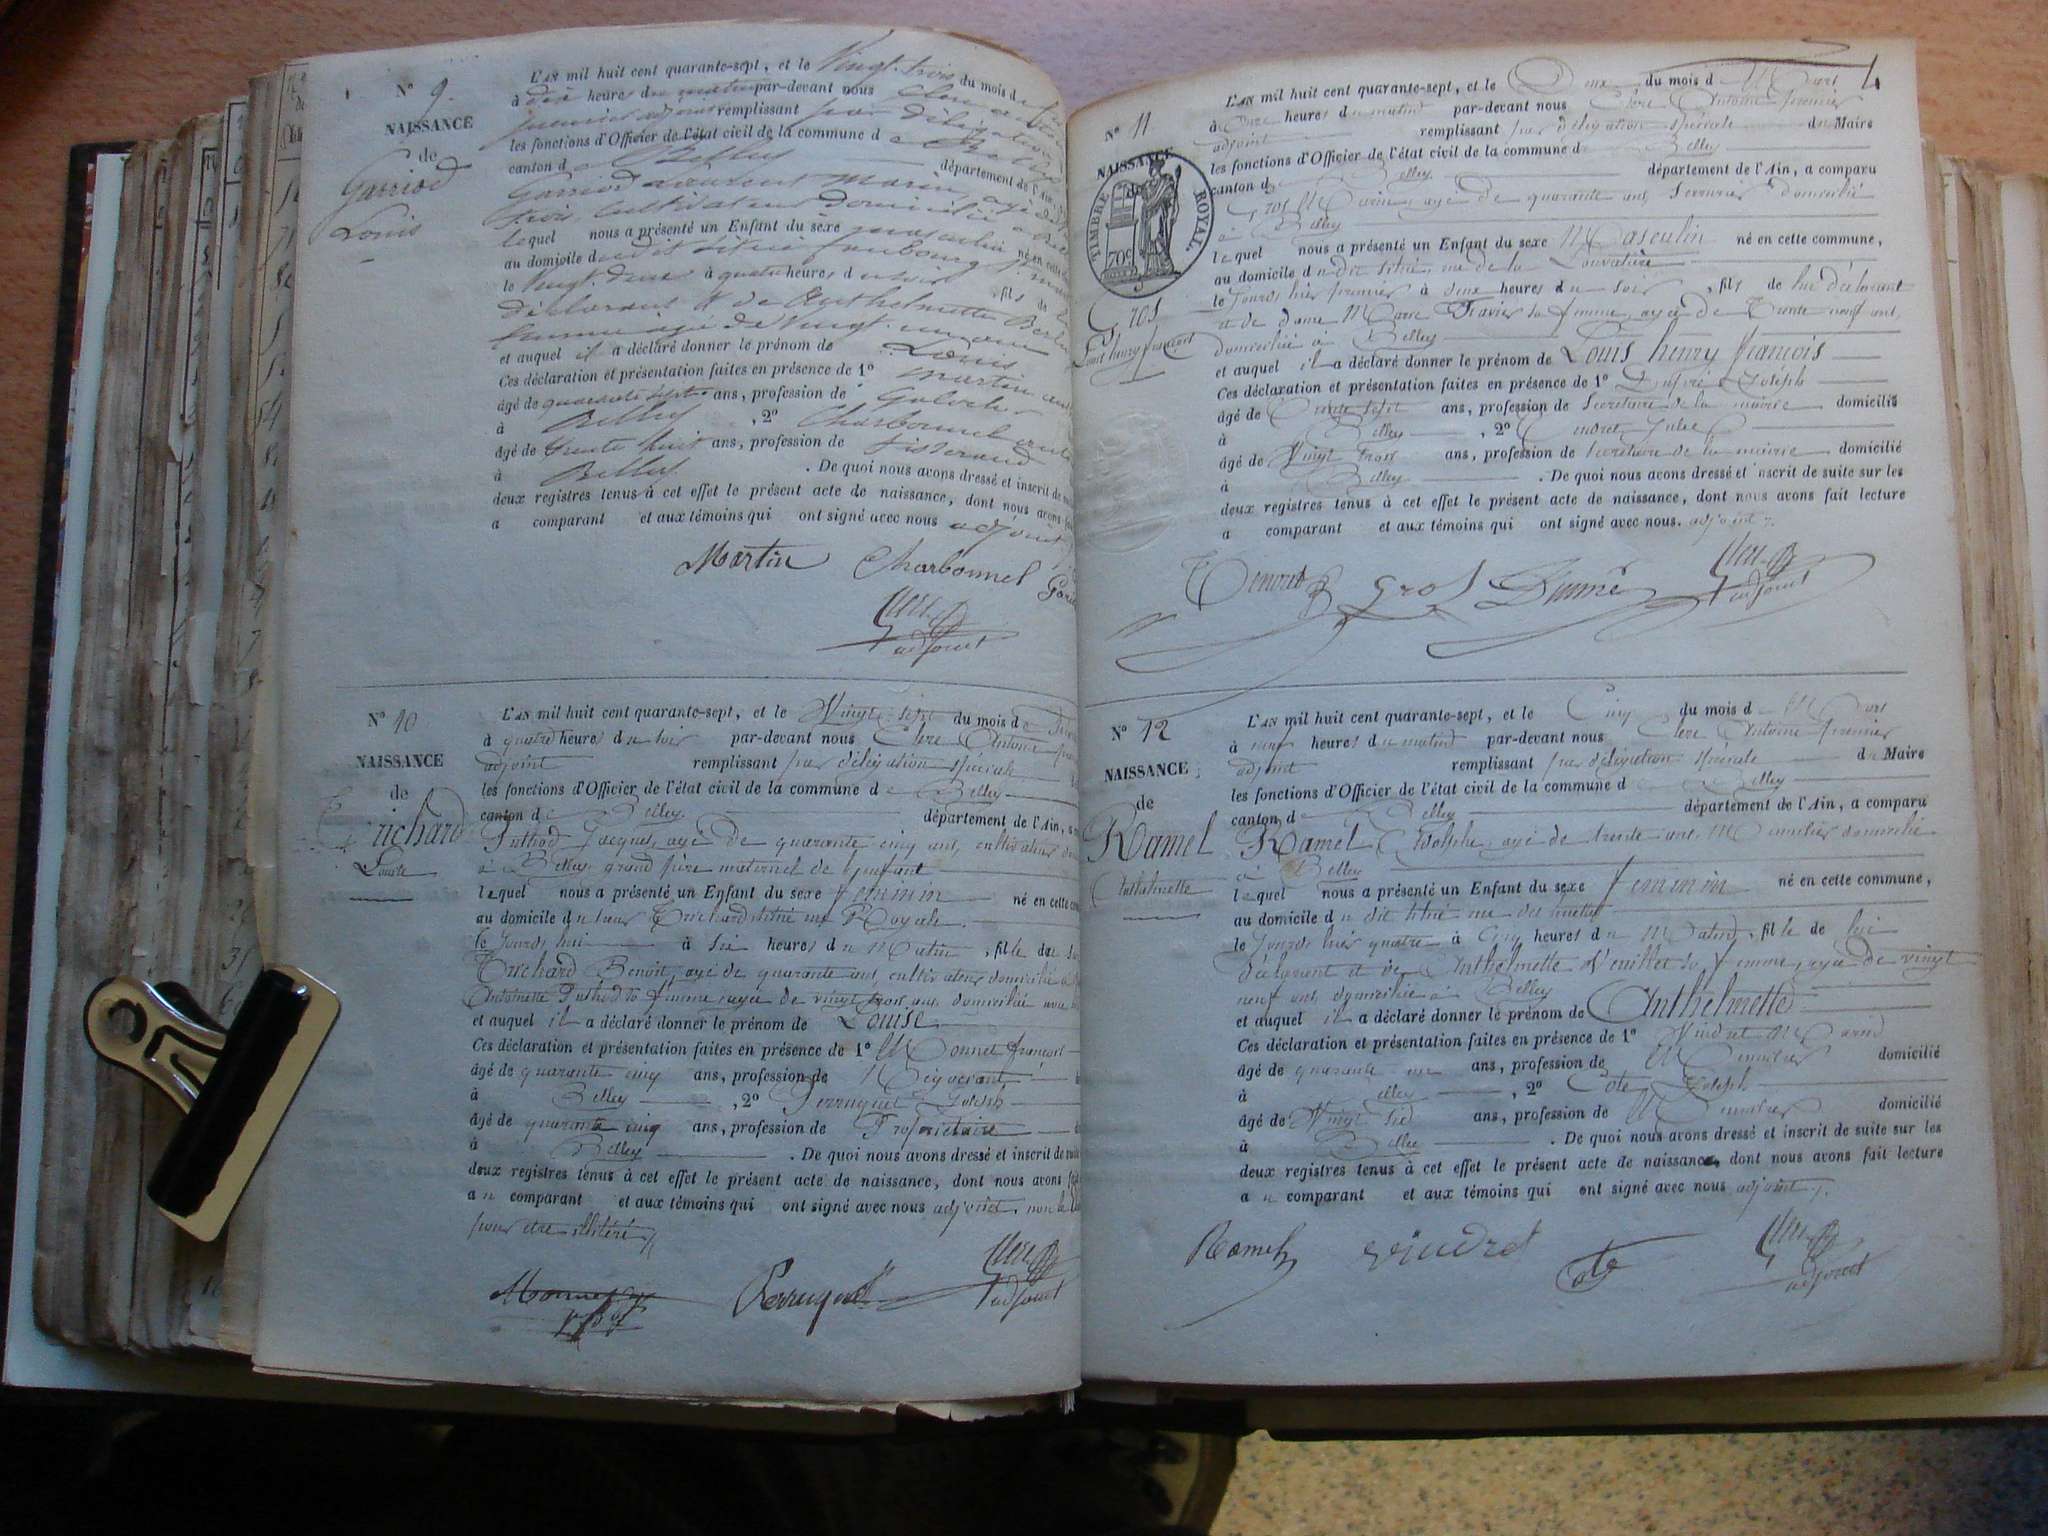 N° 9.
NAISSANCE
de
Garriod
Louis
L'AN mil huit cent quarante-sept, et le Vingt-trois du mois d
à dix heures du matin par-devant nous
premier adjoint remplissant par délégation
les fonctions d'Officier de l'état civil de la commune d
canton d Belley département de l'Ain
Garriod
trois, cultivateur domicilié à
lequel nous a présenté un Enfant du sexe masculin né en cette
au domicile dudit situé faubourg
le Vingt-deux à quatre heures du soir, fils de
déclarant et de Anthelmette
femme âgée de Vingt-un ans
et auquel il a déclaré donner le prénom de Louis
Ces déclaration et présentation faites en présence de 1° Martin
âgé de quarante sept ans, profession de
à Belley, 2° Charbonnel
âgé de trente huit ans, profession de tisserand
à Belley. De quoi nous avons dressé et inscrit de
deux registres tenus à cet effet le présent acte de naissance, dont nous avons
a comparant et aux témoins qui ont signé avec nous adjoint
Martin Charbonnel
adjoint
N° 10
NAISSANCE
de
Louise
L'AN mil huit cent quarante-sept, et le Vingt-sept du mois de
à quatre heures du soir par-devant nous Clerc Antoine
adjoint remplissant par délégation spéciale
les fonctions d'Officier de l'état civil de la commune de Belley
canton de Belley département de l'Ain,
Juthod Jacques, âgé de quarante cinq ans, cultivateur
à Belley, grand père maternel de l'enfant
lequel nous a présenté un Enfant du sexe féminin né en cette
au domicile du sieur situé rue Royale
le jourd'hui à six heures du Matin, fille de
Benoit, âgé de quarante ans, cultivateur domicilié à
Antoinette Juthod sa femme, âgée de vingt trois ans, domiciliée avec
et auquel il a déclaré donner le prénom de Louise
Ces déclaration et présentation faites en présence de 1° Monnet françois
âgé de quarante cinq ans, profession de Négociant
à Belley, 2° Perruquet Joseph
âgé de quarante cinq ans, profession de Propriétaire
à Belley. De quoi nous avons dressé et inscrit de
deux registres tenus à cet effet le présent acte de naissance, dont nous avons
au comparant et aux témoins qui ont signé avec nous adjoint, non le
pour être illitéré
Perruquet
adjoint
4
N° 11
NAISSANCE
de
TIMBRE ROYAL
70c
Gros
Louis henry françois
L'AN mil huit cent quarante-sept, et le Deux du mois de Mars
à onze heures du matin par-devant nous Clerc Antoine premier
adjoint remplissant par délégation spéciale du Maire
les fonctions d'Officier de l'état civil de la commune de Belley
canton de Belley département de l'Ain, a comparu
Gros Marie, âgé de quarante ans, Serrurier domicilié
à Belley
lequel nous a présenté un Enfant du sexe Masculin né en cette commune,
au domicile du dit situé, rue de la Louvatière
le jourd'hier premier à deux heures du soir, fils de lui déclarant
et de dame Marie Travier sa femme, âgée de Trente neuf ans,
domiciliée à Belley
et auquel il a déclaré donner le prénom de Louis henry françois
Ces déclaration et présentation faites en présence de 1° Joseph
âgé de Trente sept ans, profession de Secrétaire de la mairie domicilié
à Belley, 2° Tendret Jules
âgé de Vingt trois ans, profession de Secrétaire de la mairie domicilié
à Belley. De quoi nous avons dressé et inscrit de suite sur les
deux registres tenus à cet effet le présent acte de naissance, dont nous avons fait lecture
a comparant et aux témoins qui ont signé avec nous. adjoint
Tendret Gros
adjoint
N° 12
NAISSANCE
de
Ramel
Anthelmette
L'AN mil huit cent quarante-sept, et le Cinq du mois de Mars
à neuf heures du matin par-devant nous Clerc Antoine premier
adjoint remplissant par délégation spéciale du Maire
les fonctions d'Officier de l'état civil de la commune d Belley
canton de Belley département de l'Ain, a comparu
Ramel Adolphe, âgé de trente ans, Menuisier domicilié
à Belley
lequel nous a présenté un Enfant du sexe féminin né en cette commune,
au domicile du dit situé rue des
le Jourd'hier quatre à Cinq heures du Matin, fille de lui
déclarant et de Anthelmette sa femme, âgée de vingt
neuf ans, domiciliée à Belley
et auquel il a déclaré donner le prénom de Anthelmette
Ces déclaration et présentation faites en présence de 1° Vindret Marie
âgé de quarante un ans, profession de Menuisier domicilié
à Belley, 2° Cote Joseph
âgé de Vingt six ans, profession de Menuisier domicilié
à Belley. De quoi nous avons dressé et inscrit de suite sur les
deux registres tenus à cet effet le présent acte de naissance, dont nous avons fait lecture
au comparant et aux témoins qui ont signé avec nous adjoint
Ramel vindret Cote
adjoint